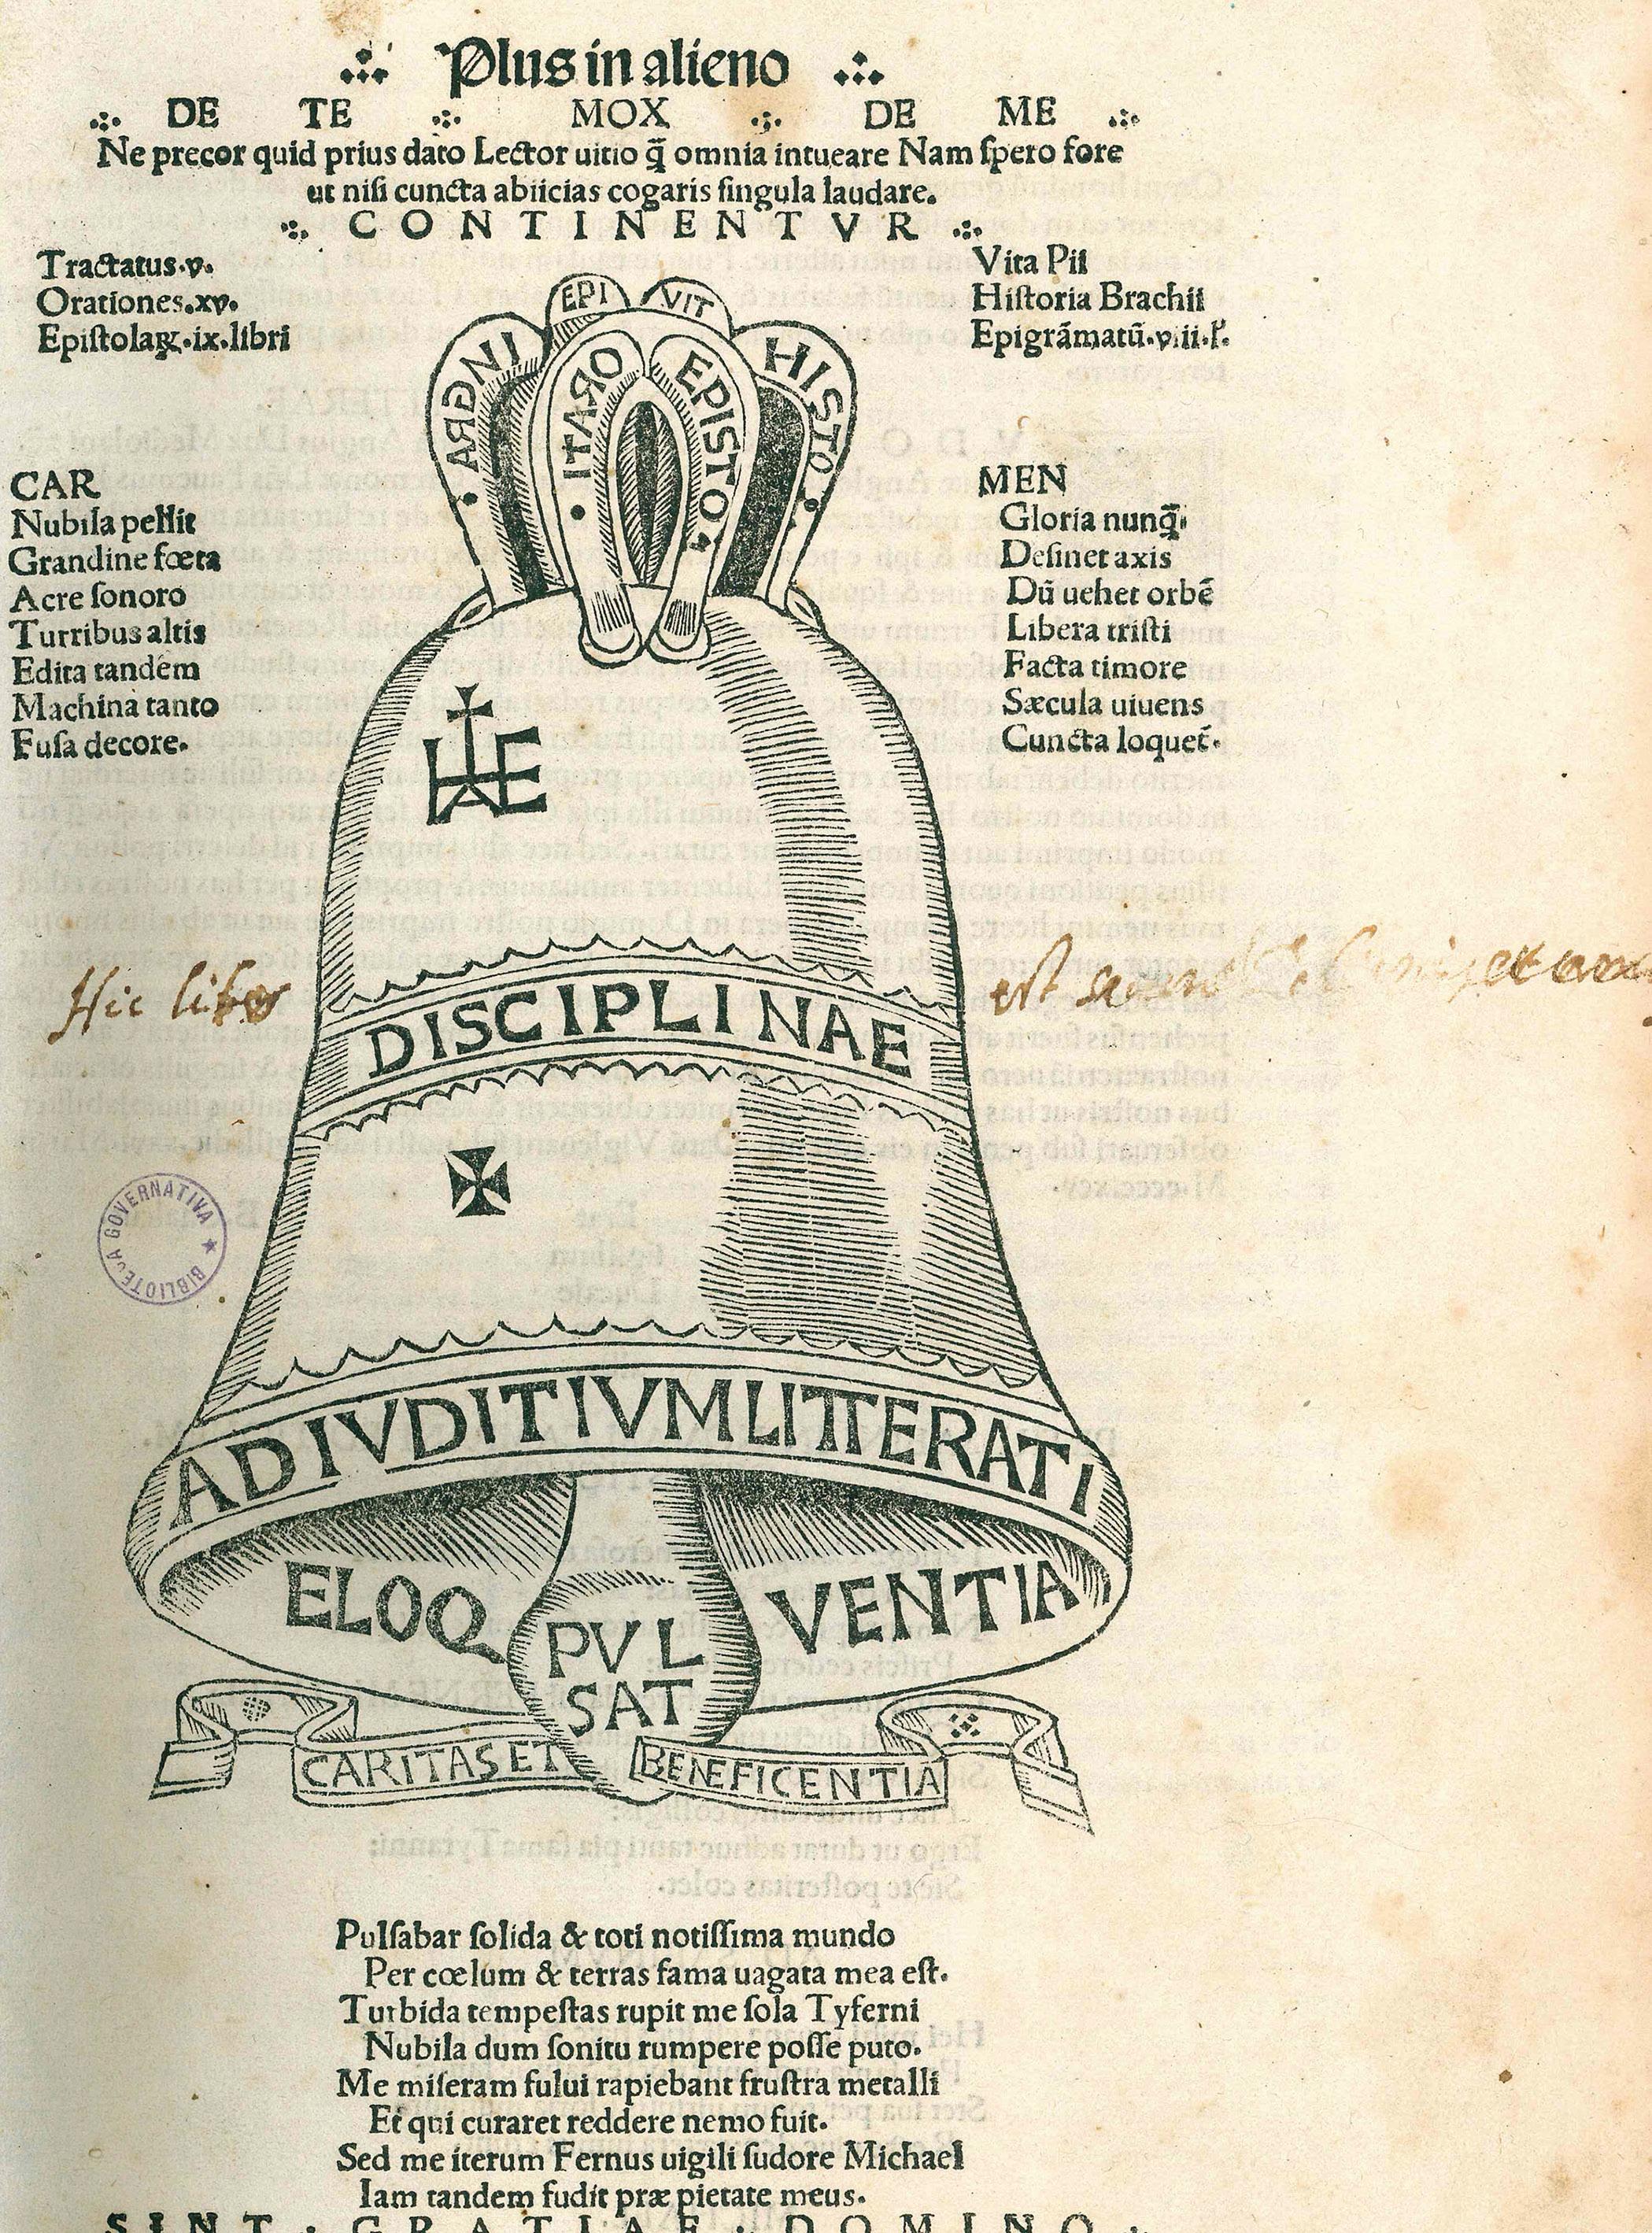 Plus in alieno
DE TE MOX DE ME
Ne precor quid prius dato Lector uitio q̃ omnia intueare Nam ſpero fore
ut niſi cuncta abiicias cogaris ſingula laudare.
CONTINENTVR
Tractatus.v.
Orationes.xv.
Epiſtolaꝝ.ix.libri
Vita Pii
Hiſtoria Brachii
Epigrãmatũ.viii.l.
EPI
VIT
INGRA
ORATI
EPISTO
HISTO
CAR
Nubila pellit
Grandine fœta
Acre ſonoro
Turribus altis
Edita tandem
Machina tanto
Fuſa decore.
MEN
Gloria nunq̃
Deſinet axis
Dũ uehet orbẽ
Libera triſti
Facta timore
Sæcula uiuens
Cuncta loquet̃.
Hic liber est
DISCIPLINAE
BIBLIOTECA GOVERNATIVA
AD IVDITIVM LITTERATI
ELOQVENTIA
PVL
SAT
CARITAS ET BENEFICENTIA
Pulſabar ſolida & toti notiſſima mundo
Per cœlum & terras fama uagata mea eſt.
Turbida tempeſtas rupit me ſola Tyferni
Nubila dum ſonitu rumpere poſſe puto.
Me miſeram fului rapiebant fruſtra metalli
Et qui curaret reddere nemo fuit.
Sed me iterum Fernus uigili ſudore Michael
Iam tandem fudit præ pietate meus.
SINT . GRATIAE . DOMINO .